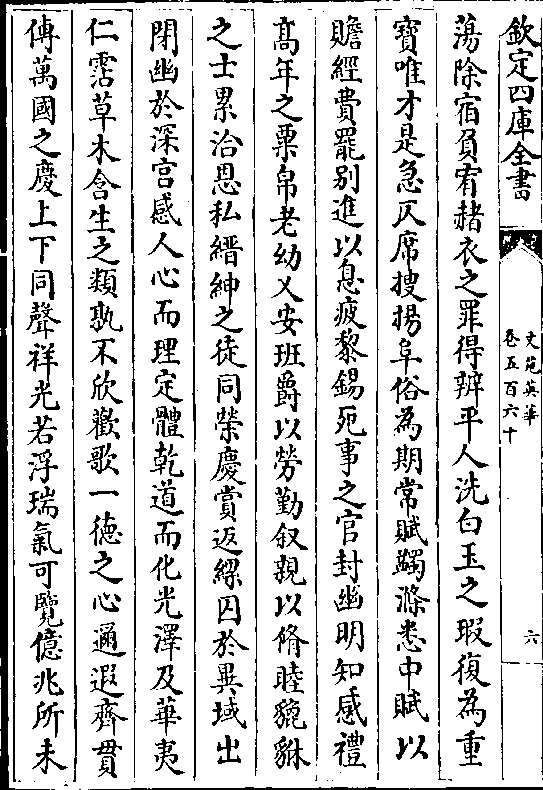 欽定四庫全書
文苑英華
卷五百六十
六
蕩除宿負宥赭衣之罪得辨平人洗白玉之瑕復為重
寶唯才是急仄席搜揚阜俗為期常賦蠲滌悉中賦以
贍經費罷别進以息疲黎錫死事之官封幽明知感禮
髙年之粟帛老幼乂安班爵以勞勤叙親以脩睦貔貅
之士累洽恩私縉紳之徒同榮慶賞返縲囚於異域出
閉幽於深宫感人心而理定體乾道而化光澤及華夷
仁霑草木含生之類孰不欣歡歌一德之心遍遐齊貫
傳萬國之慶上下同聲祥光若浮瑞氣可覽億兆所未